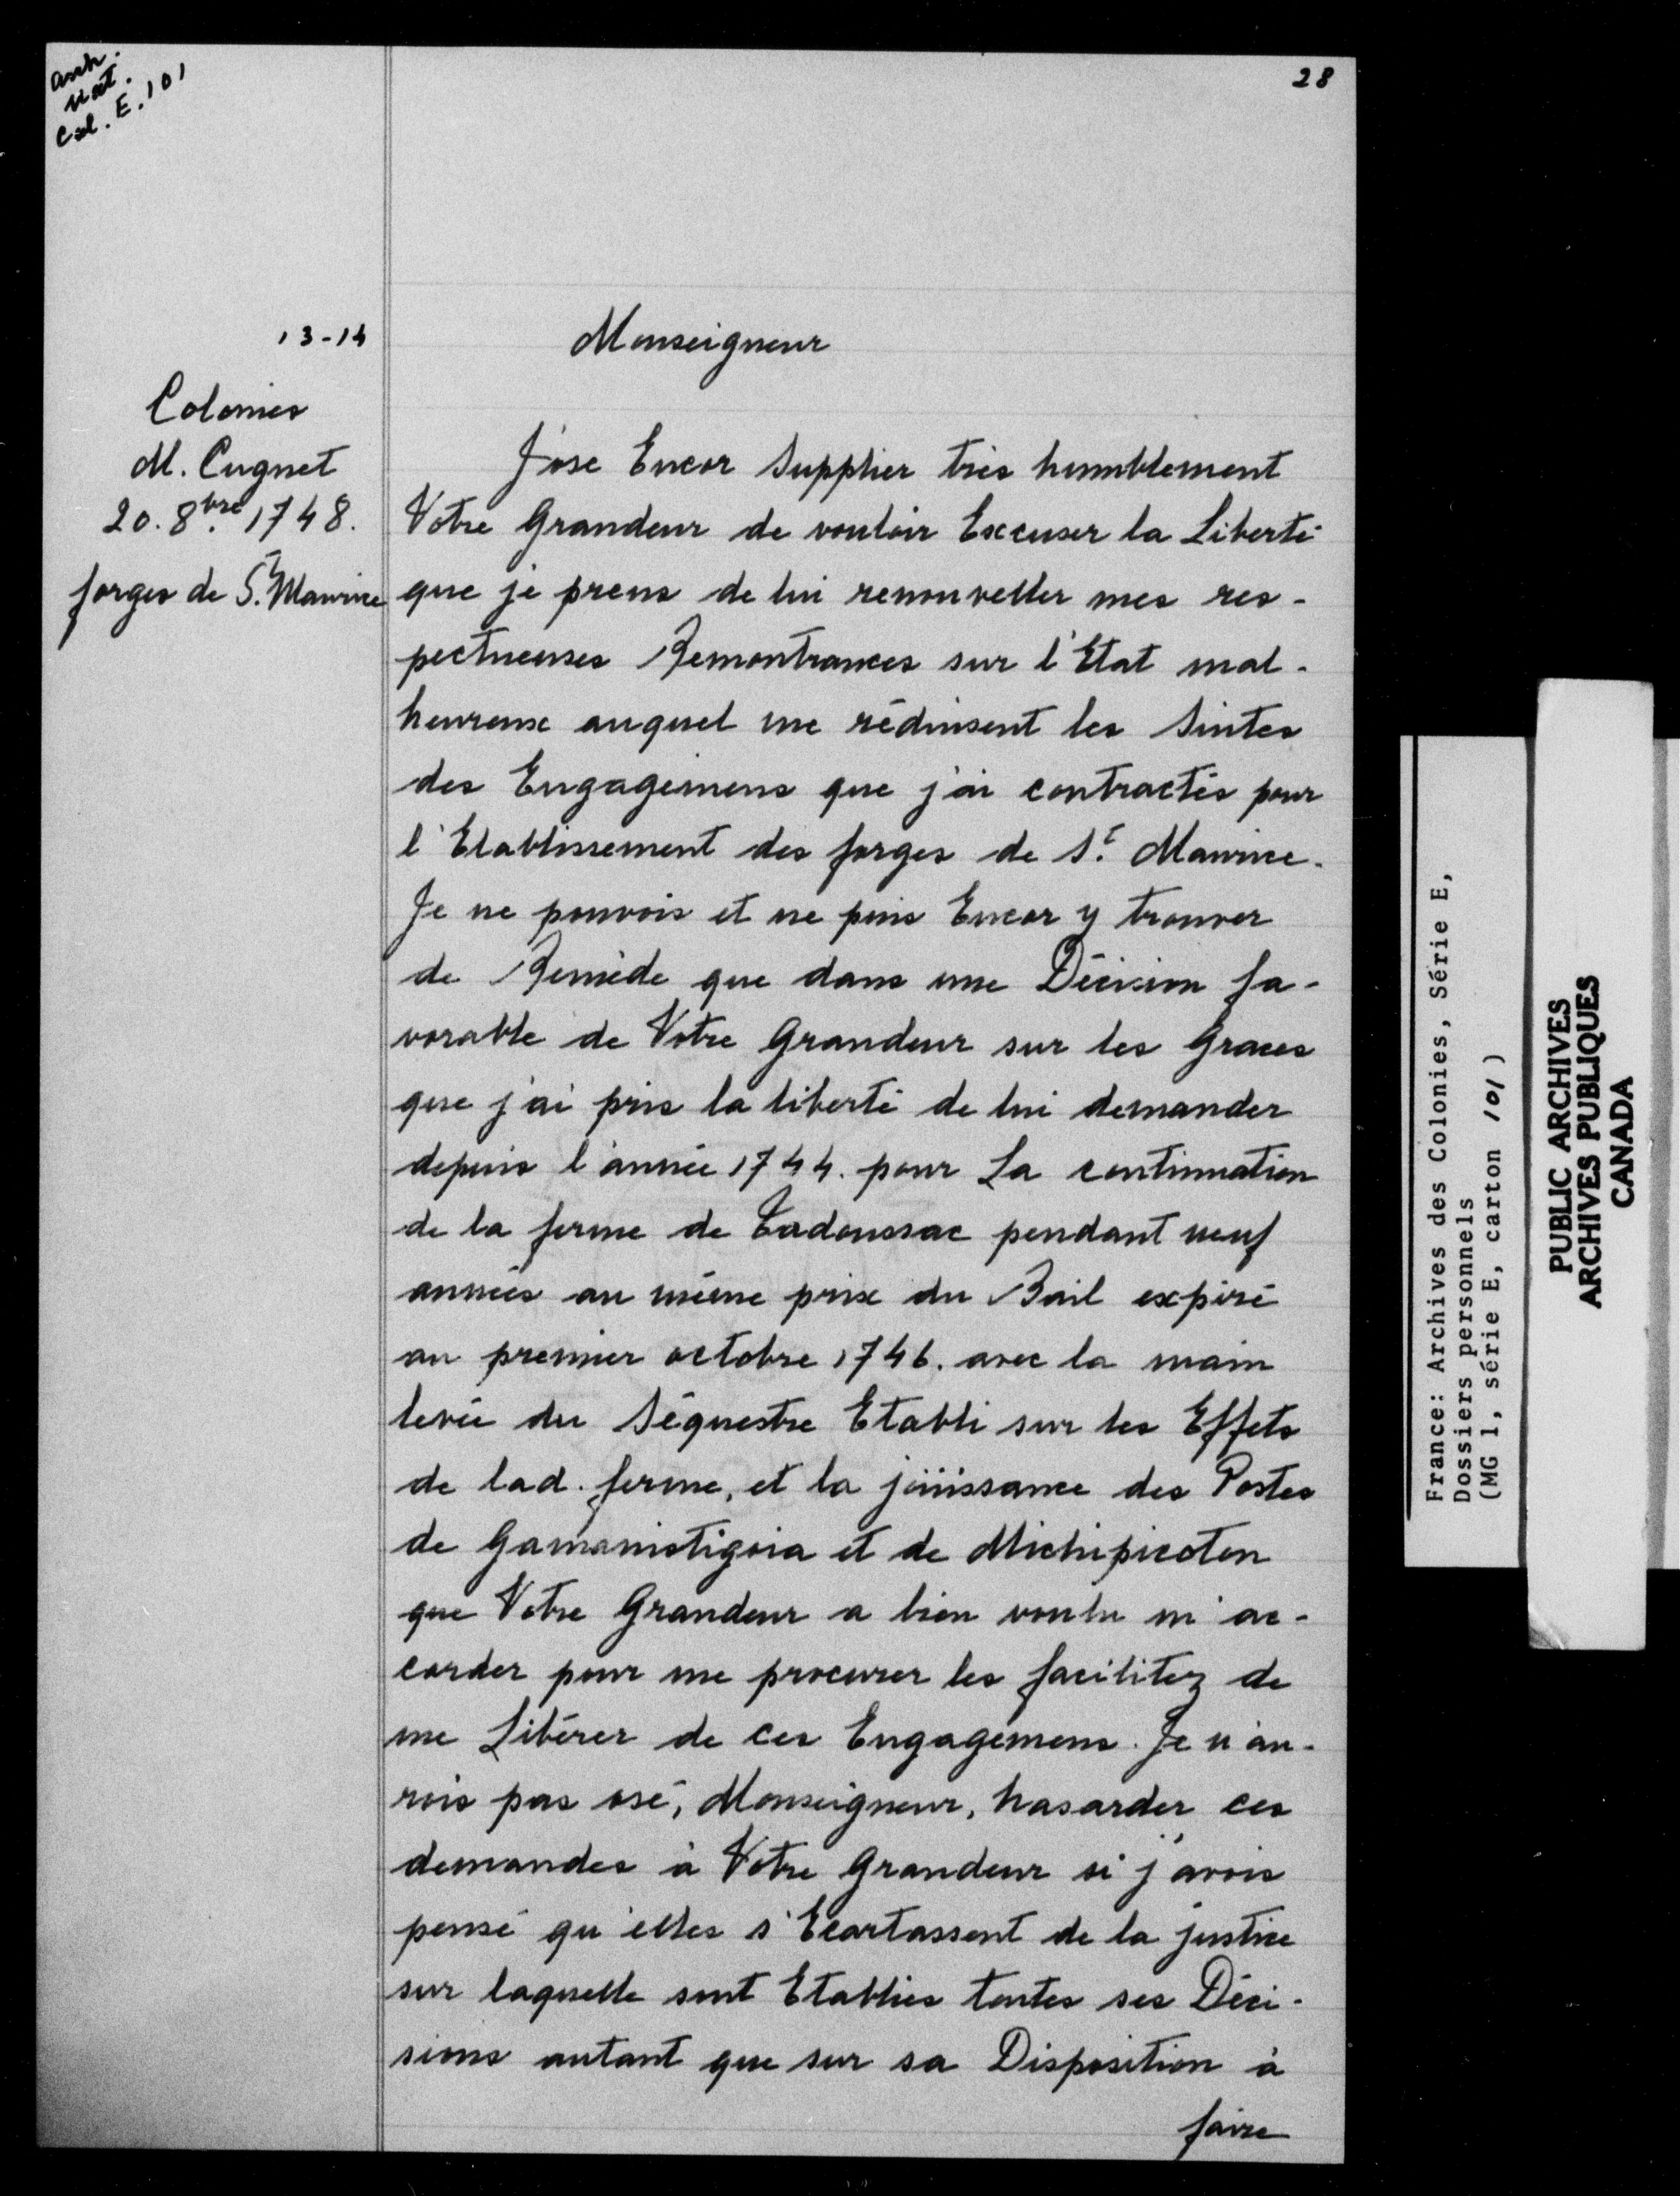 arch.
nat.
Col. E. 101
28
13-14
Colonies
M. Cugnet
20. 8bre. 1748.
forges de St. Maurice
Monseigneur
J'ose Encor Supplier très humblement
Votre Grandeur de vouloir Excuser la Liberté
que je prens de lui renouveller mes res-
pectueuses Remontrances sur l'Etat mal-
heureux auquel me réduisent les Suites
des Engagemens que j'ai contractés pour
l'Etablissement des forges de St. Maurice.
Je ne pouvois et ne puis Encor y trouver
de Remède que dans une Décision fa-
vorable de Votre Grandeur sur les Graces
que j'ai pris la liberté de lui demander
depuis l'année 1744. pour La continuation
de la ferme de Tadoussac pendant neuf
années au même prix du Bail expiré
au premier octobre 1746. avec la main
levée du Séquestre Etabli sur les Effets
de lad. ferme, et la joüissance des Postes
de Gamanistigoia et de Michipicoton
que Votre Grandeur a bien voulu m'ac-
corder pour me procurer les facilitez de
me Libérer de ces Engagemens. Je n'au-
rois pas osé, Monseigneur, hasarder ces
demandes à Votre Grandeur si j'avois
pensé qu'elles s'Ecartassent de la justice
sur laquelle sont Etablies toutes ses Déci-
sions autant que sur sa Disposition à
faire
France: Archives des Colonies, Série E,
Dossiers personnels
(MG 1, série E, carton 101)
PUBLIC ARCHIVES
ARCHIVES PUBLIQUES
CANADA